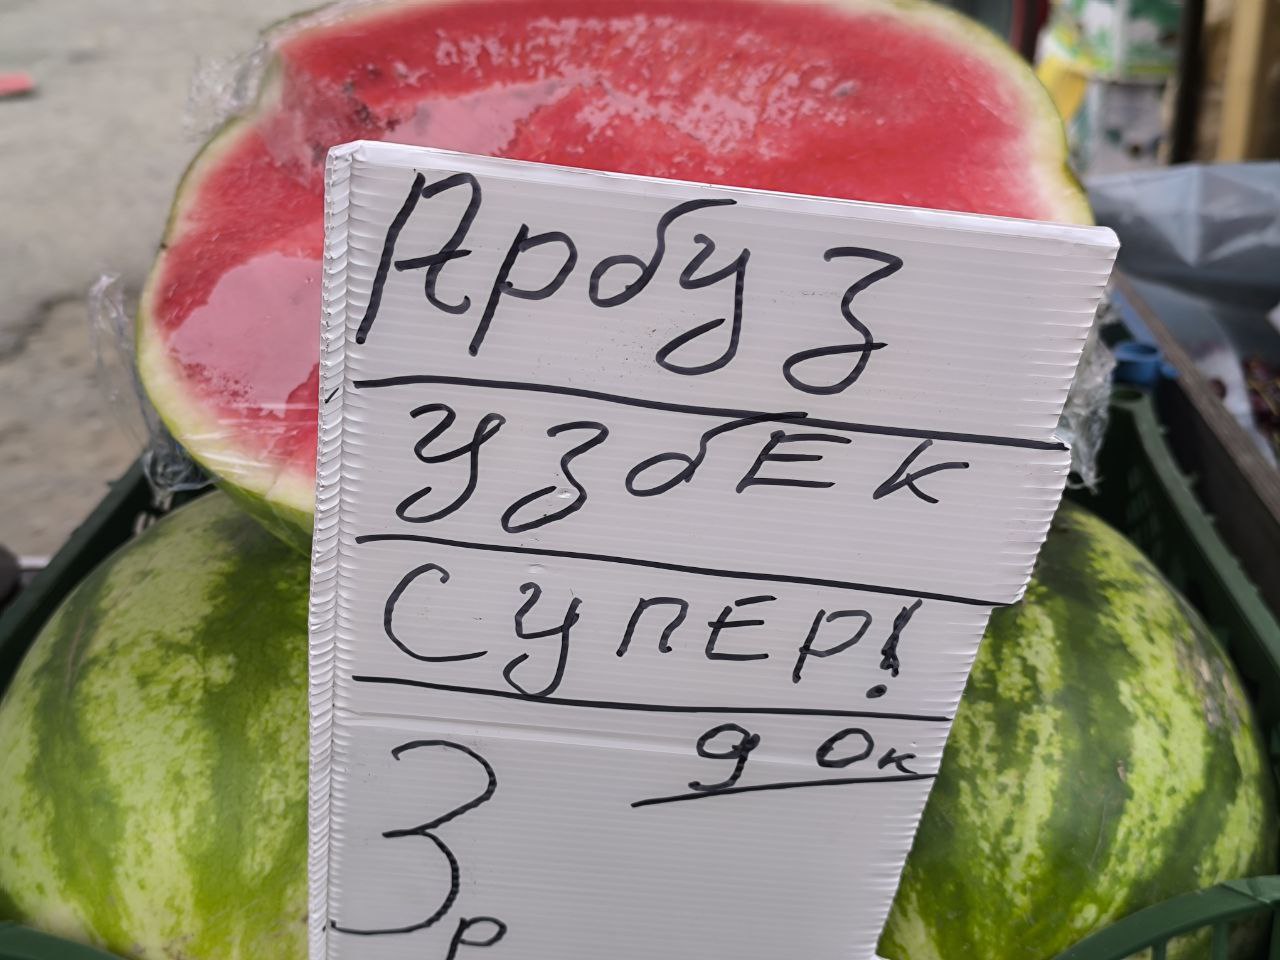 Арбуз
Узбек
Супер!
3р 90к